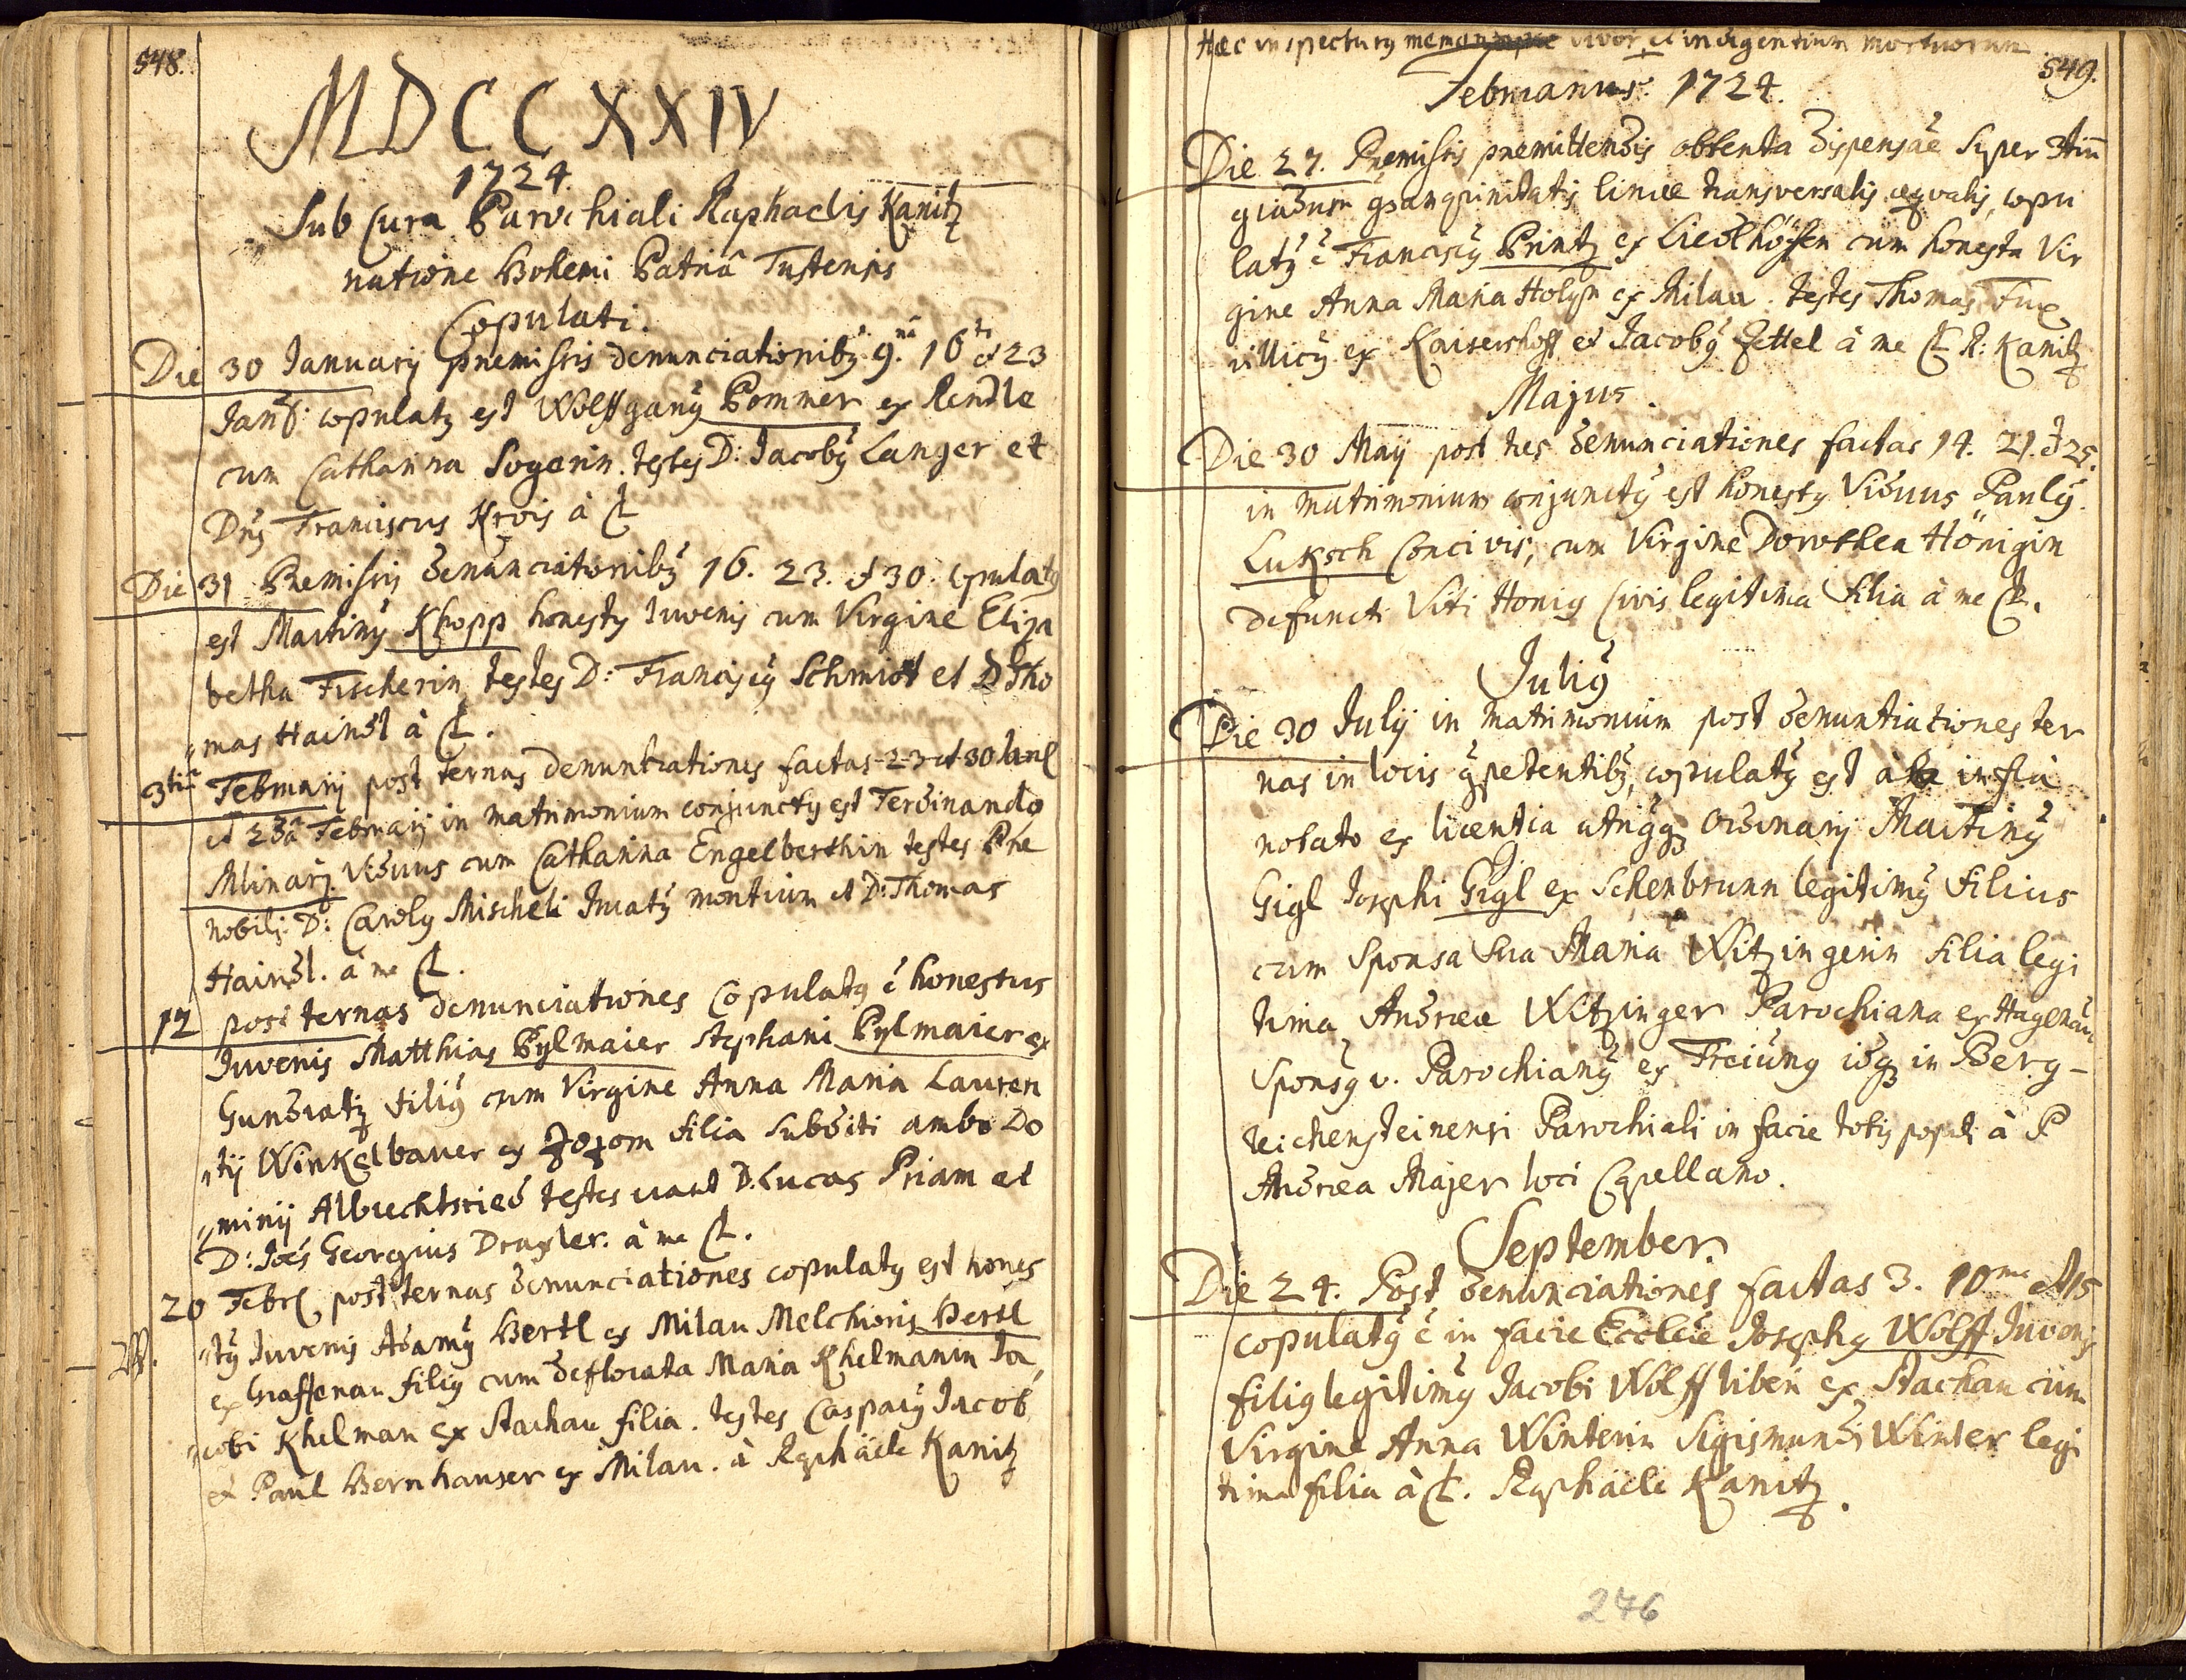 548.
MDCCXXIV
1724.
Sub Cura Parochiali Raphaelis Kanitz
natione Bohemi Patriâ Tustensis
Copulati.
Die 30 Januarij præmissis denunciationibꝫ 9.na 16ta et 23
Janr: copulatꝫ est Wolffgangꝫ Pommer ex Rendle
cum Catharina Sogerin. testes D: Jacobꝫ Langer et
Dnꝫ Franciscus Krois à C
Die 31 Præmissis denunciationibꝫ 16. 23. et 30. Copulatꝫ
est Martinꝫ Khopp honestꝫ Iuvenis cum Virgine Eliza
betha Fischerin, testes D: Franciscꝫ Schmidt et D Tho
„mas Haindl à C.
3tia Februarij post ternas denuntiationes factas 23 et 30 Janr
et 2da Februarij in matrimonium conjunctꝫ est Ferdinandꝫ
Mlinarz. Viduus cum Catharina Engelberthin testes Præ
nobilis D: Carolꝫ Mischeli Juratꝫ montium et D: Thomas
Haindl. à me C.
12 post ternas denunciationes Copulatꝫ ẽ honestus
Iuvenis Matthias Pylmaier Stephani Pylmaier ex
Gundratꝫ filiꝫ cum Virgine Anna Maria Lauren
„tij Winkelbauer ex filia Subditi ambo Do
„minij Albrechtsried testes erant D. Lucas Priam et
D: Joẽs Georgius Draxler. à me C.
20 Febr post ternas denunciationes copulatꝫ est hones
„tꝫ Iuvenis Adamꝫ Hertl ex Milau Melchioris Hertl
W. ex Graffenau filiꝫ cum deflorata Maria Khelmanin Ja
„cobi Khelman ex Stachau filia. testes Casparꝫ Jacob
et Paul Bernhauser ex Milau. à Raphaele Kanitz
Hæc inspecturꝫ vivor. et indigentium mortuorum
549.
Februarius. 1724.
Die 27. Præmissis præmittendis obtenta dispensaẽ super 3tiũ
gradum gsangvinitatis lineæ transversalis æqvalis, copu
latꝫ ẽ Franciscꝫ Printz ex Liedlhöffen cum honesta Vir
gine Anna Maria Holysn ex Milau. testes Thomas Fux
villicꝫ ex Kaisershoff et Jacobꝫ Zettel à me C R: Kanitz
Majus.
Die 30 Maij post tres denunciationes factas 14. 21. et 25.
in matrimonium conjunctꝫ est honestꝫ Viduus Paulꝫ
Luksch Concivis, cum Virgine Dorothea Hönigin
defuncti Viti Honig Civis legitima filia à me C.
Juliꝫ
Die 30 Julij in matrimonium post denuntiationes ter
nas in locis gpetentibꝫ, copulatꝫ est à infra
notato ex licentia utriꝫqꝫ Ordinarij Martinꝫ
Gigl Josephi Gigl ex Schenbrunn legitimꝫ filius
cum Sponsa sua Maria Witzingerin filia legi
tima Andreæ Witzinger Parochiana ex Hagenau
Sponsꝫ v. Parochianꝫ ex Freiung idqꝫ in Berg-
reichensteinensi Parochiali in facie totiꝫ populi à P
Andræa Majer loci Capellano.
September.
Die 24. Post denunciationes factas 3. 10ma et 15
copulatꝫ ẽ in facie Eccleiæ Josephꝫ Wolff Iuvenis
filiꝫ legitimꝫ Jacobi Wolff liberi ex Stachau cum
Virgine Anna Winterin Sigismundi Winter legi
tima filia à C. Raphaele Kanitz.
246